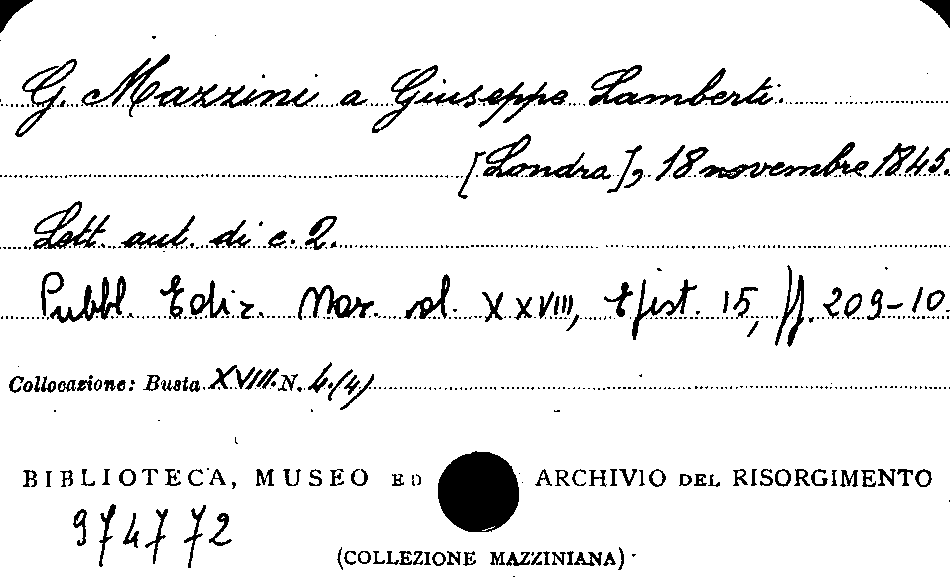 G. Mazzini a Giuseppe Lamberti.
[Londra], 18 novembre 1845.
Lett. aut. di c. 2.
Pubbl. Ediz. Naz. vol. XXVIII, Epist. 15, pp. 209-10.
Collocazione: Busta XVIII. N. 4.(4)
BIBLIOTECA, MUSEO ED ARCHIVIO DEL RISORGIMENTO
974772
(COLLEZIONE MAZZINIANA)